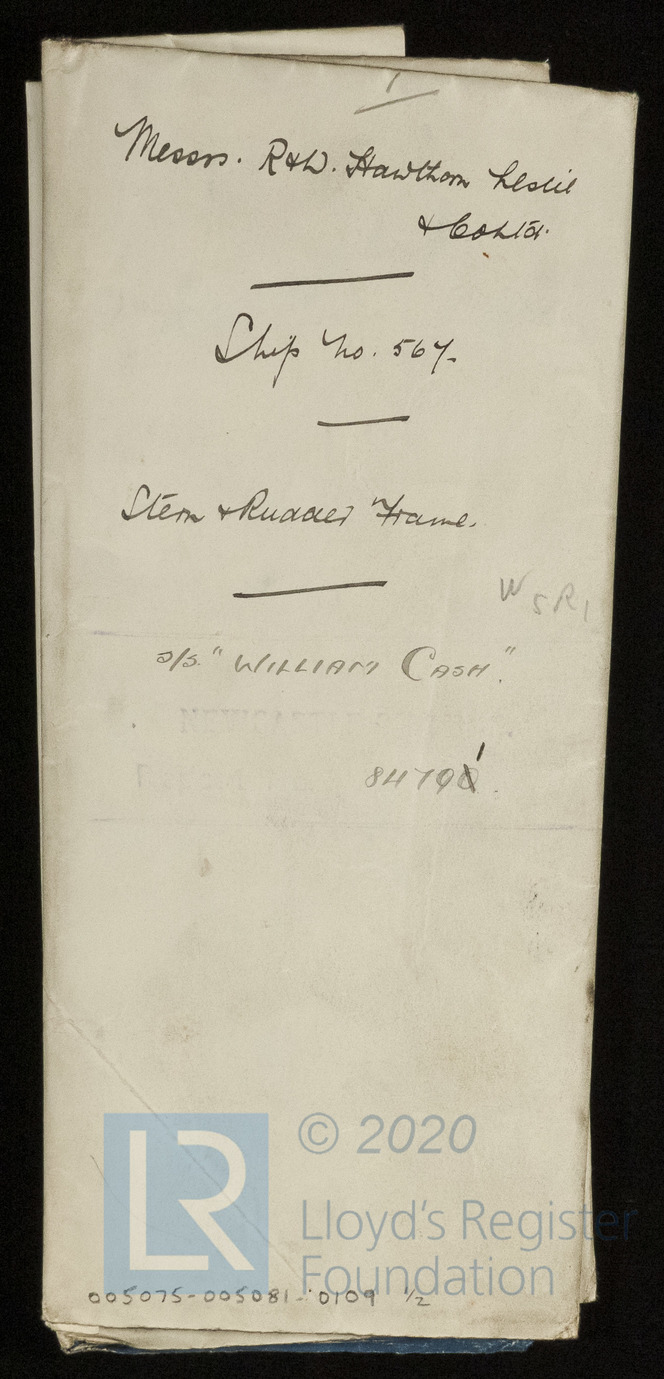 Messrs. R&W. Hawthorn Leslie
& Co Ltd.
Ship No. 567.
Stern & Rudder Frame.
W 5 R 1
S/S. "WILLIAM CASH".
84790 1
LR
© 2020
Lloyd's Register
Foundation
005075-005081-0109 1/2